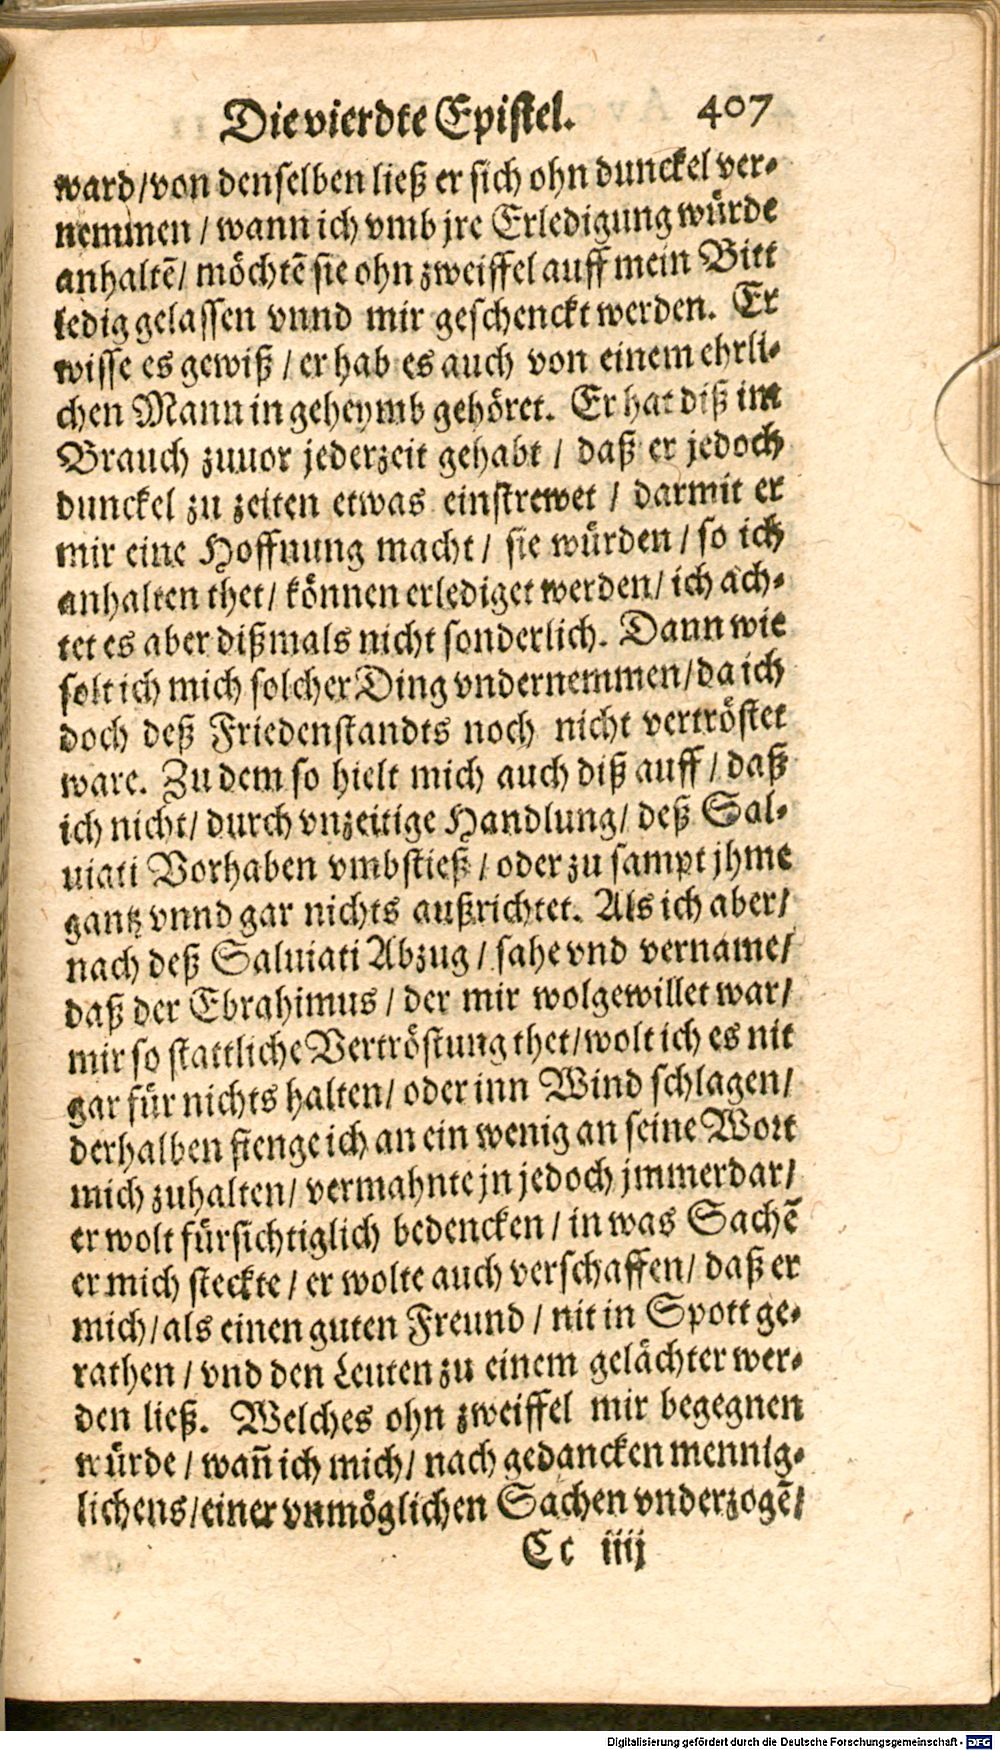 Die vierdte Epistel. 407
ward/von denselben ließ er sich ohn dunckel ver-
nemmen / wann ich vmb jre Erledigung würde
anhaltē/ möchtē sie ohn zweiffel auff mein Bitt
ledig gelassen vnnd mir geschenckt werden. Er
wisse es gewiß / er hab es auch von einem ehrli-
chen Mann in geheymb gehöret. Er hat diß im
Brauch zuuor jederzeit gehabt / daß er jedoch
dunckel zu zeiten etwas einstrewet / darmit er
mir eine Hoffnung macht / sie würden / so ich
anhalten thet/ können erlediget werden/ ich ach-
tet es aber dißmals nicht sonderlich. Dann wie
solt ich mich solcher Ding vndernemmen/da ich
doch deß Friedenstandts noch nicht vertröstet
ware. Zu dem so hielt mich auch diß auff / daß
ich nicht/ durch vnzeitige Handlung/ deß Sal-
uiati Vorhaben vmbstieß / oder zu sampt jhme
gantz vnnd gar nichts außrichtet. Als ich aber/
nach deß Saluiati Abzug / sahe vnd vername/
daß der Ebrahimus / der mir wolgewillet war/
mir so stattliche Vertröstung thet/wolt ich es nit
gar für nichts halten/ oder inn Wind schlagen/
derhalben fienge ich an ein wenig an seine Wort
mich zuhalten/ vermahnte jn jedoch jmmerdar/
er wolt fürsichtiglich bedencken / in was Sachē
er mich steckte / er wolte auch verschaffen/ daß er
mich/als einen guten Freund / nit in Spott ge-
rathen / vnd den Leuten zu einem gelächter wer-
den ließ. Welches ohn zweiffel mir begegnen
würde / wan̄ ich mich/ nach gedancken mennig-
lichens/einer vnmöglichen Sachen vnderzogē/
Cc iiij
Digitalisierung gefördert durch die Deutsche Forschungsgemeinschaft - DFG